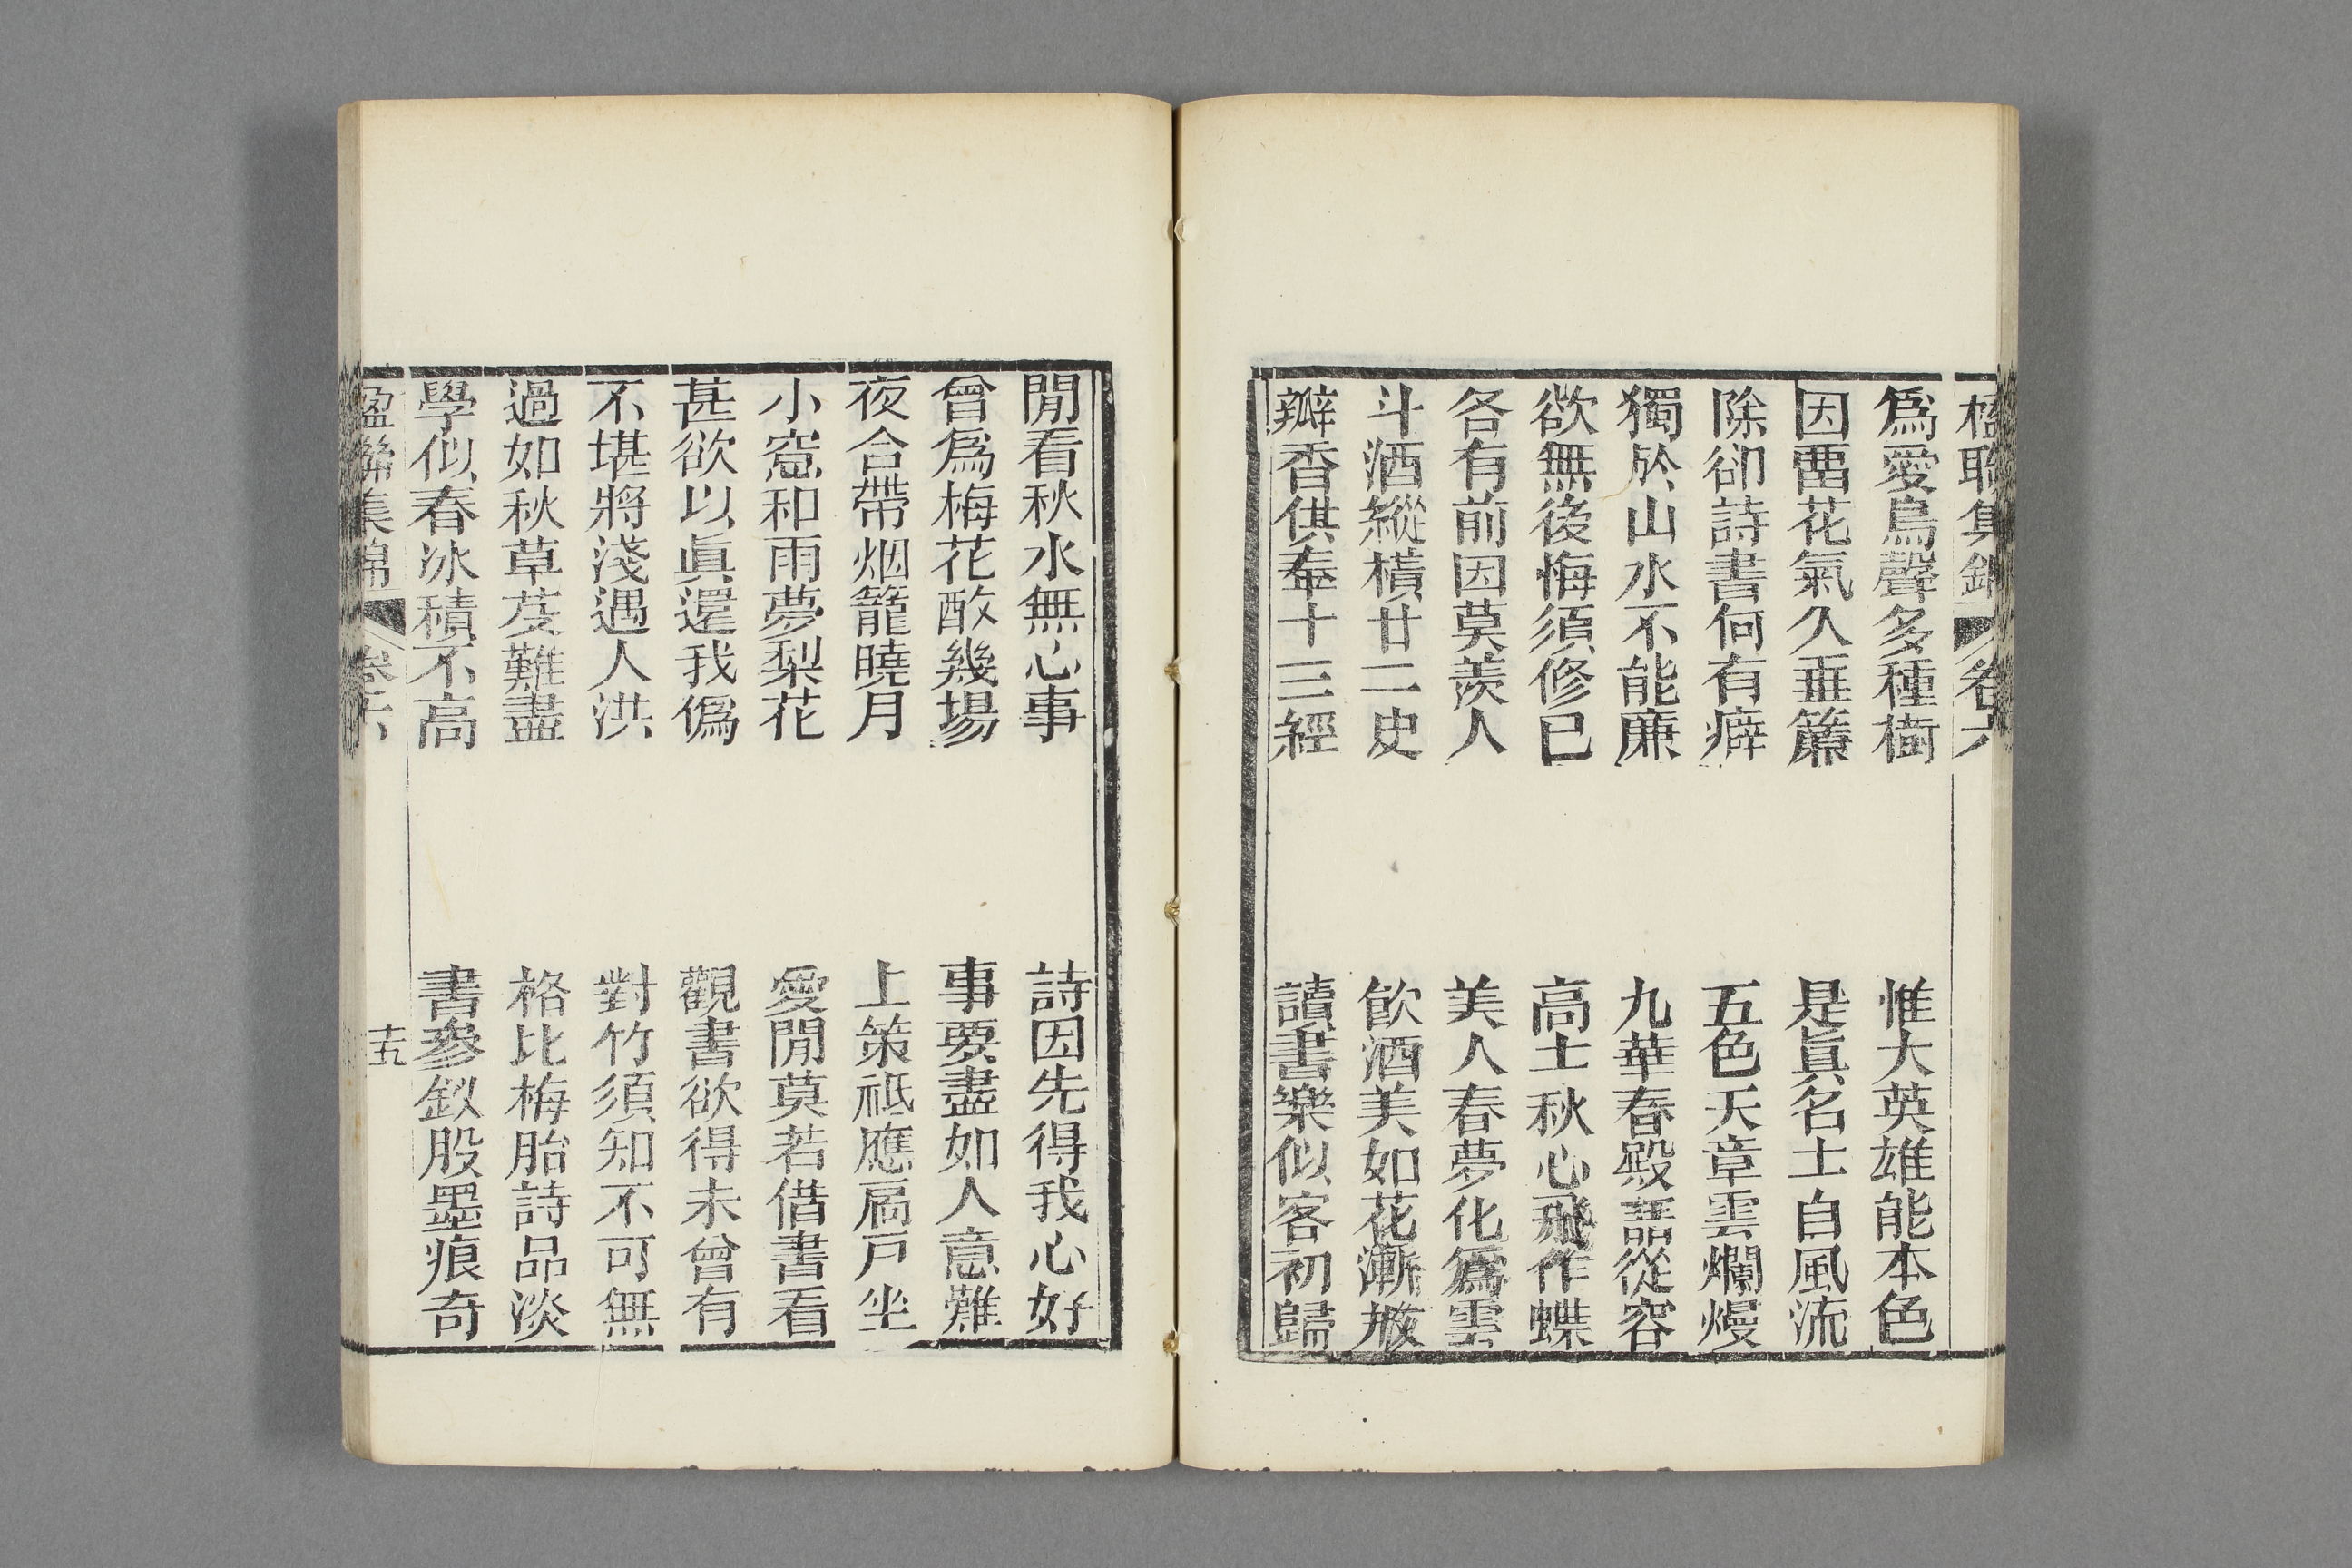 楹聯集錦 卷六
爲愛鳥聲多種樹
因畱花氣久垂簾
除卻詩書何有癖
獨於山水不能廉
欲無後悔須修己
各有前因莫羨人
斗酒縱橫廿二史
瓣香供奉十三經
惟大英雄能本色
是眞名士自風流
五色天章雲爛熳
九華春殿語從容
高士秋心飛作蝶
美人春夢化爲雲
飮酒美如花漸放
讀書樂似客初歸
閒看秋水無心事
曾爲梅花酔幾場
夜合帶烟籠曉月
小窻和雨夢梨花
甚欲以眞還我僞
不堪將淺遇人洪
過如秋草芟難盡
學似春冰積不高
詩因先得我心好
事要盡如人意難
上策祗應扃戸坐
愛閒莫若借書看
觀書欲得未曾有
對竹須知不可無
格比梅胎詩品淡
書參釵股墨痕奇
楹聯集錦 卷六 十五